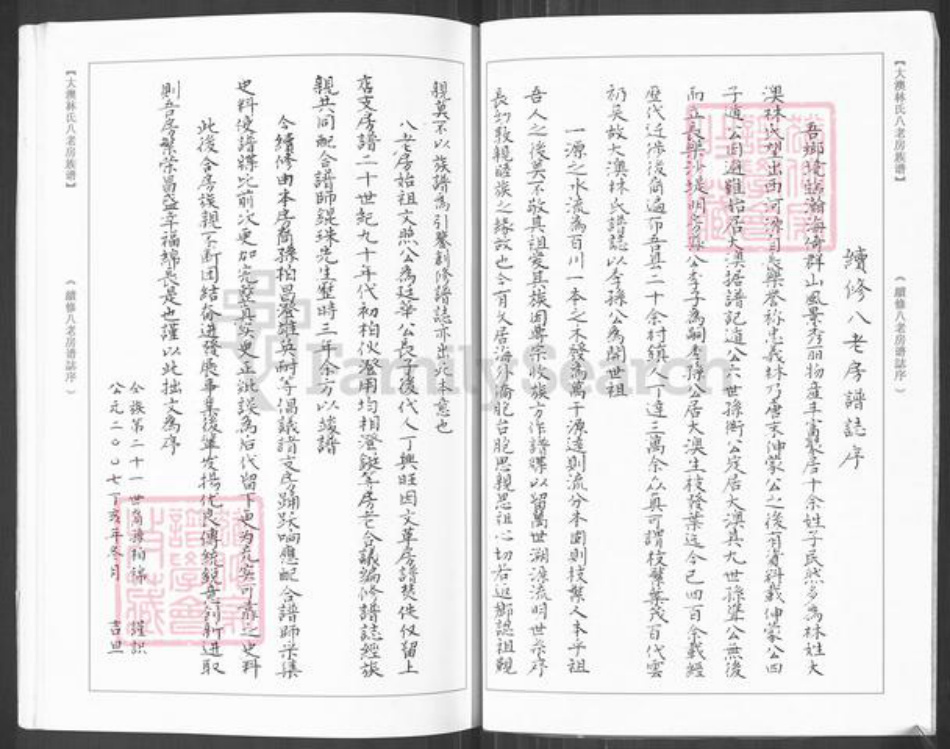 【大澳林氏八老房族谱】
《續修八老房谱誌序》
續修八老房譜誌序
吾鄉境臨瀚海倚群山風景秀丽物産丰富聚居十余姓子民然多為林姓大
澳林氏望出西河源自長樂譽称忠義林乃唐文仲蒙公之後有資料載仲蒙公四
子遁公因避難抬居大澳据譜記遁公六世孫衛公定居大澳其九世孫肇公無後
而立長樂沙堤明房孫公季子為嗣李孫公居大澳生枝發葉迄今已四百余載經
歷代迁徙後裔遍布吾县二十余村鎮人丁達三萬余众真可謂枝繁葉茂百代雲
礽矣故大澳林氏譜誌以李孫公為開世祖
一源之水流為百川一本之木發為萬千源遠則流分本固則枝繁人本乎祖
吾人之後莫不敬其祖愛其族因尊宗收族方作譜牒以留萬世溯源流明世系序
長幼敦親睦族之緣故也今有久居海外僑胞台胞思親思祖心切若返鄉認祖觀
親莫不以族譜為引譽創修譜誌亦出此本意也
八老房始祖文熙公為廷華公長子後代人丁興旺因文革房譜焚佚仅留上
店支房譜二十世紀九十年代初柏伙澄用均相澄鋌等房老合議編修譜誌經族
親共同配合譜師錕珠先生歷時三年余方以竣譜
今續修由本房裔孫柏昌登雄英耐等倡議諸支房踊跃响應配合譜師采集
史料使譜牒比前次更加完整真实更正訛誤為后代留下更为充实可靠之史料
此後合房族親不断团结奋進發展事業後輩发揚优良傳統銳意创新進取
則吾房繁荣昌盛幸福綿長是也謹以此拙文為序
合族第二十一世裔孫柏錦 謹識
公元二〇〇七丁亥年冬月 吉旦
【大澳林氏八老房族谱】
《續修八老房谱誌序》
FamilySearch